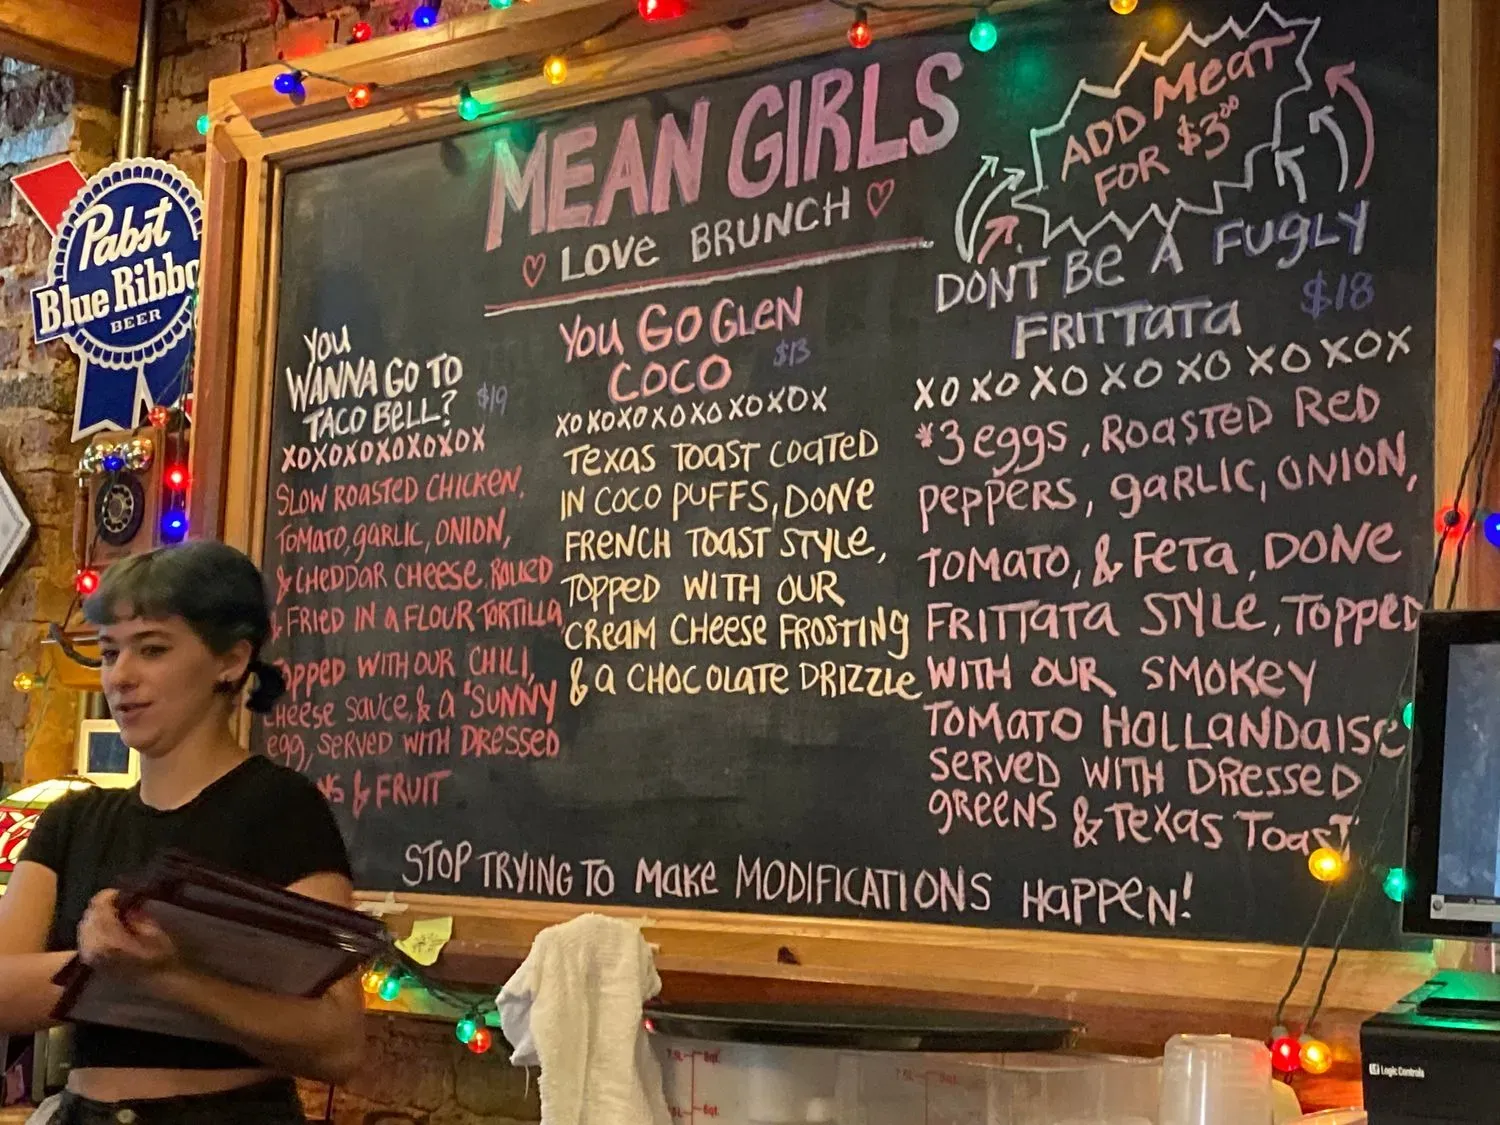 Pabst
Blue Ribbo
BEER
MEAN GIRLS
LOVE BRUNCH
ADD MEAT
FOR $3.00
YOU
WANNA GO TO
TACO BELL? $19
XOXOXOXOXOXOX
SLOW ROASTED CHICKEN,
TOMATO, GARLIC, ONION,
& CHEDDAR CHEESE, ROLLED
& FRIED IN A FLOUR TORTILLA
TOPPED WITH OUR CHILI,
CHEESE SAUCE, & A *SUNNY
EGG, SERVED WITH DRESSED
NS & FRUIT
YOU GO GLEN
COCO $13
XOXOXOXOXOXOXOX
TEXAS TOAST COATED
IN COCO PUFFS, DONE
FRENCH TOAST STYLE,
TOPPED WITH OUR
CREAM CHEESE FROSTING
& A CHOCOLATE DRIZZLE
DONT BE A FUGLY
FRITTATA $18
XOXOXOXOXOXOXOX
*3 EGGS, ROASTED RED
PEPPERS, GARLIC, ONION,
TOMATO, & FETA, DONE
FRITTATA STYLE, TOPPED
WITH OUR SMOKEY
TOMATO HOLLANDAISE
SERVED WITH DRESSED
GREENS & TEXAS TOAST
STOP TRYING TO MAKE MODIFICATIONS HAPPEN!
Logic Controls
8qt.
6qt.